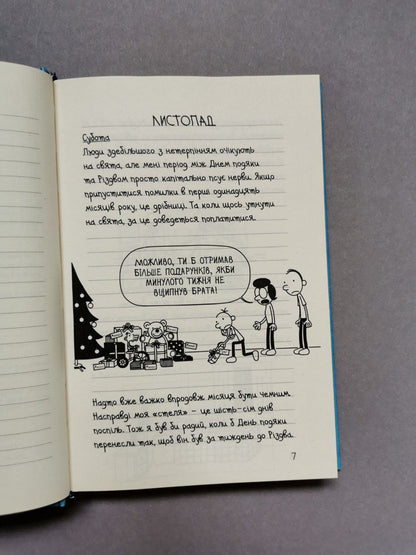 ЛИСТОПАД
Субота
Люди здебільшого з нетерпінням очікують
на свята, але мені період між Днем подяки
та Різдвом просто капітально псує нерви. Якщо
припуститися помилки в перші одинадцять
місяців року, це дрібниці. Та коли щось утнути
на свята, за це доведеться поплатитися.
МОЖЛИВО, ТИ Б ОТРИМАВ
БІЛЬШЕ ПОДАРУНКІВ, ЯКБИ
МИНУЛОГО ТИЖНЯ НЕ
ВЩИПНУВ БРАТА!
Надто вже важко впродовж місяця бути чемним.
Насправді моя «стеля» – це шість-сім днів
поспіль. Тож я був би радий, коли б День подяки
перенесли так, щоб він був за тиждень до Різдва.
7